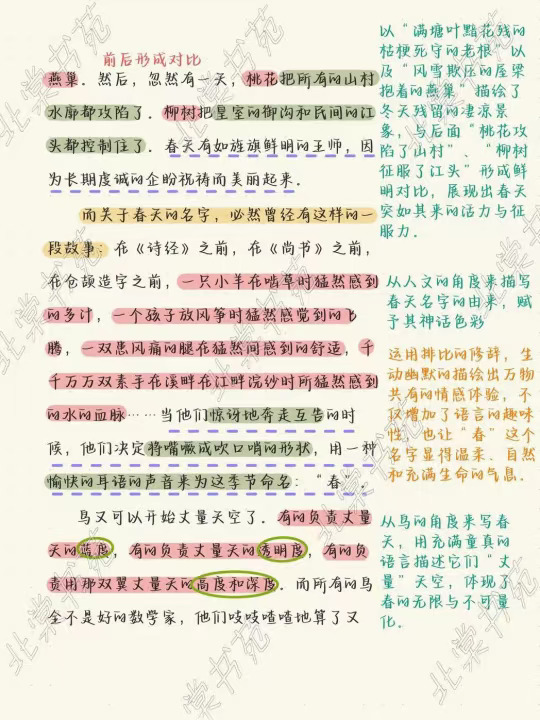 前后形成对比
燕巢．然后，忽然有一天，桃花把所有的山村
水廓都攻陷了．柳树把皇室的御沟和民间的江
头都控制住了．春天有如旌旗鲜明的王师，因
为长期虔诚的企盼祝祷而美丽起来．
而关于春天的名字，必然曾经有这样的一
段故事：在《诗经》之前，在《尚书》之前，
在仓颉造字之前，一只小羊在啮草时猛然感到
的多汁，一个孩子放风筝时猛然感觉到的飞
腾，一双患风痛的腿在猛然间感到的舒适，千
千万万双素手在溪畔在江畔浣纱时所猛然感到
的水的血脉……当他们惊讶地奔走互告的时
候，他们决定将嘴噘成吹口哨的形状，用一种
愉快的耳语的声音来为这季节命名：“春”．
鸟又可以开始丈量天空了．有的负责丈量
天的蓝度，有的负责丈量天的透明度，有的负
责用那双翼丈量天的高度和深度．而所有的鸟
全不是好的数学家，他们吱吱喳喳地算了又
以“满塘叶黯花残的
枯梗死守的老根”以
及“风雪欺压的屋梁
抱着的燕巢”描绘了
冬天残留的凄凉景
象，与后面“桃花攻
陷了山村”、“柳树
征服了江头”形成鲜
明对比，展现出春天
突如其来的活力与征
服力．
从人文的角度来描写
春天名字的由来，赋
予其神话色彩
运用排比的修辞，生
动幽默的描绘出万物
共有的情感体验，不
仅增加了语言的趣味
性，也让“春”这个
名字显得温柔、自然
和充满生命的气息．
从鸟的角度来写春
天，用充满童真的
语言描述它们“丈
量”天空，体现了
春的无限与不可量
化．
北棠书苑